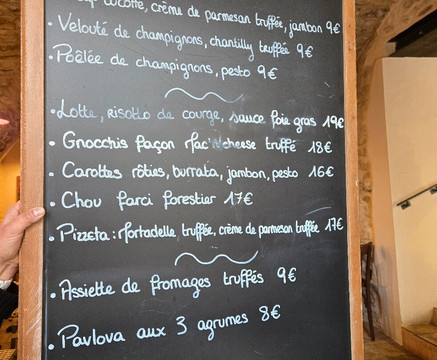 cocotte, crème de parmesan truffée, jambon 9€
• Velouté de champignons, chantilly truffée 9€
• Poêlée de champignons, pesto 9€
• Lotte, risotto de courge, sauce foie gras 19€
• Gnocchis façon mac'n'cheese truffé 18€
• Carottes rôties, burrata, jambon, pesto 16€
• Chou farci forestier 17€
• Pizzeta : mortadelle truffée, crème de parmesan truffée 17€
• Assiette de fromages truffés 9€
• Pavlova aux 3 agrumes 8€